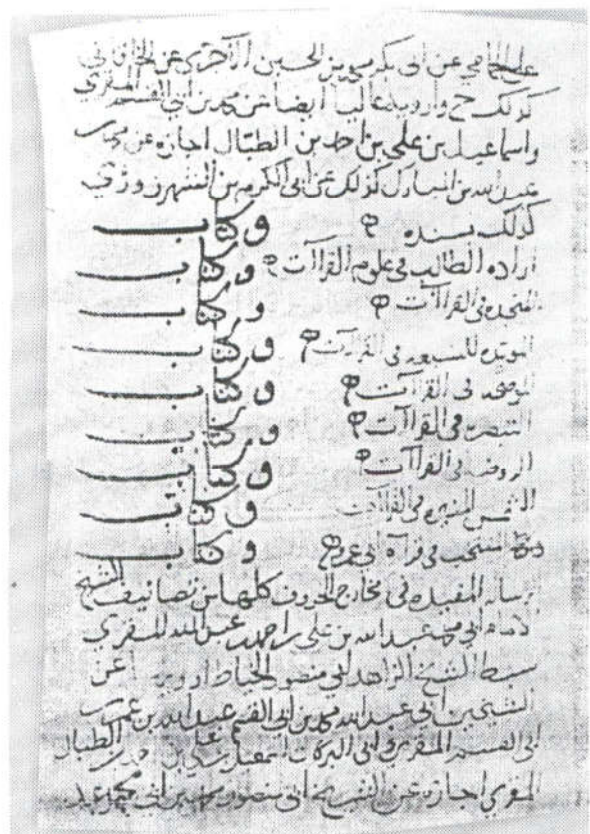 على الحمامي عن ابي بكر محمد بن الحسين الآجري عن
كذلك ح وارويه عاليا ايضا عن محمد بن ابي القسم المقري
واسماعيل بن علي بن احمد بن الطبال اجازة عن
عبد الله بن المبارك كذلك عن ابي الكرم بن الشهرزوري
كذلك بسنده وكتاب
ارادة الطالب في علوم القراآت وكتاب
المنجدة في القراآت وكتاب
المويدة للسبعة في القراآت وكتاب
الموضحة في القراآت وكتاب
التبصرة في القراآت وكتاب
الروضة في القراآت وكتاب
الشمس المنيرة في القراآت وكتاب
المنتخب في قراة ابي عمرو وكتاب
الرسالة المفيدة في مخارج الحروف كلها من تصانيف الشيخ
الامام ابي محمد عبد الله بن علي بن احمد بن عبد الله المقري
سبط الشيخ الزاهد ابي منصور الخياط ارويه عن
الشيخين ابي عبد الله محمد بن ابي القسم عبد الله بن عمر بن
ابي القسم المقري وابي البركات اسمعيل بن علي بن احمد بن الطبال
المقري اجازة عن الشيخ ابي منصور محمد بن ابي محمد عبد